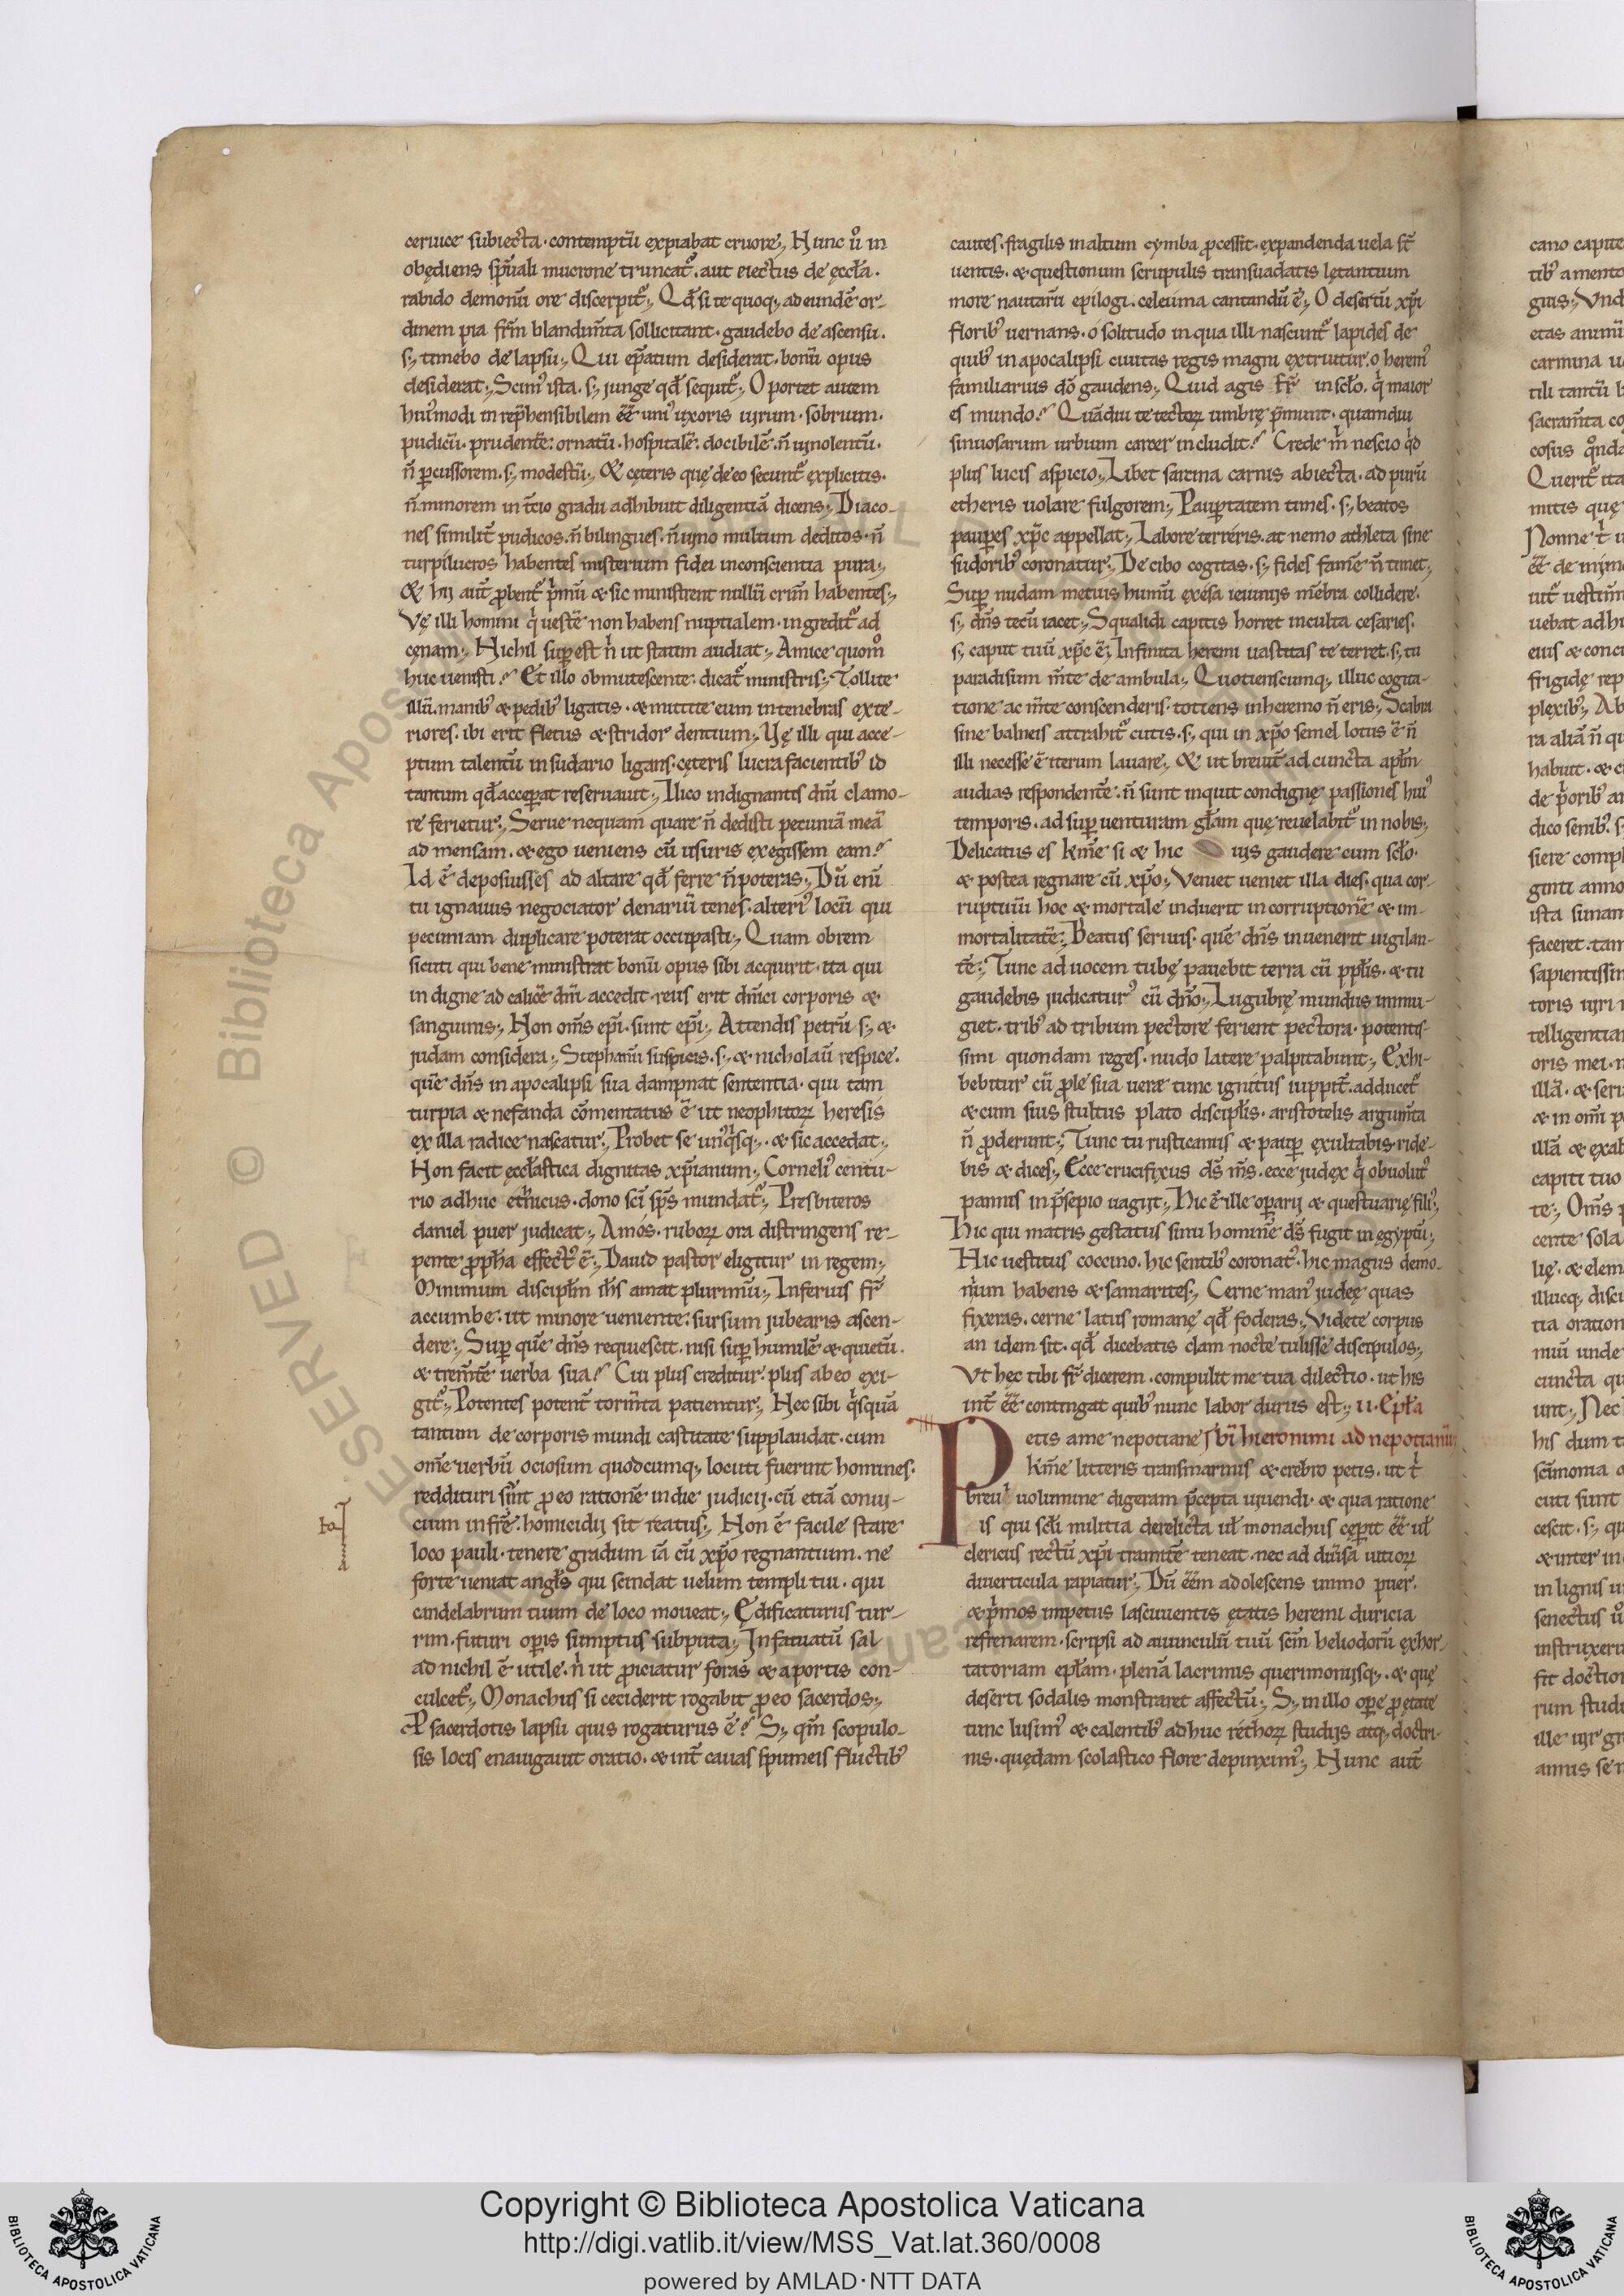 ceruice subiecta · contemptū expiabat cruore; Hunc ů in
obędiens sp̄uali mucrone truncat᷑. aut eiectus de ęccła.
rabido demonū ore discerpit᷑; Qđ si te quoq; ad eundē or-
dinem pia fr̄m blandim̄ta sollicitant · gaudebo de ascensu.
s; timebo de lapsu; Qui ep̄atum desiderat · bonū opus
desiderat; Scim᷒ ista. s; junge qđ sequit᷑; Oportet autem
hui᷒modi inrep̄hensibilem ēē uni᷒ uxoris uirum · sobrium ·
pudicū · prudentē: ornatū · hospitalē · docibilē · n̄ uinolentū ·
n̄ ꝑcussorem · s; modestū; & cęteris que de eo secunt᷑ explicitis ·
n̄ minorem in t̄cio gradu adhibuit diligentiā dicens; Diaco-
nes similit̄ pudicos · n̄ bilingues · n̄ uino multum deditos · n̄
turpilucros habentes misterium fidei in conscientia pura;
& hij aut̄ ꝓbent᷑ p̄mū & sic ministrent nullū crim̄ habentes;
Vę illi homini q̍ uestē non habens nuptialem · ingredit᷑ ad
cęnam; Nichil suꝑest n̍ ut statim audiat; Amice quom̊
huc uenisti? Et illo obmutescente · dicat᷑ ministris; Tollite
illū · manib᷒ & pedib᷒ ligatis · & mittite eum in tenebras exte-
riores. ibi erit fletus & stridor dentium; Vę illi qui acce-
ptum talentū in sudario ligans · cęteris lucra facientib᷒ id
tantum qđ acceꝑat reseruauit; Ilico indignantis dn̄i clamo-
re ferietur; Serue nequam quare n̄ dedisti pecuniā meā
ad mensam · & ego ueniens cū usuris exegissem eam?
Id ē deposuisses ad altare qđ ferre n̄ poteras; Dū enī
tu ignauus negociator denariū tenes · alteri᷒ locū qui
pecuniam duplicare poterat occupasti; Quam obrem
sicuti qui bene ministrat bonū opus sibi acquirit · ita qui
indigne ad calicē dn̄i accedit · reus erit dn̄ici corporis &
sanguinis; Non om̄s ep̄i · sunt ep̄i; Attendis petrū s; &
judam considera; Stephanū suspicis · s; & nicholaū respice.
quē dn̄s in apocalipsi sua dampnat sententia · qui tam
turpia & nefanda cōmentatus ē ut neophitoꝝ heresis
ex illa radice nascatur; Probet se unq̍sq; · & sic accedat;
Non facit ęccłastica dignitas xp̄ianum; Corneli᷒ centu-
rio adhuc ethnicus · dono sc̄i sp̄s mundat᷑; Presbiteros
daniel puer judicat; Amos · ruboꝝ ora distringens re-
pente ꝓpha effect᷒ ē; Dauid pastor eligitur in regem;
Minimum discipłm ih̄s amat plurimū; Inferius fr̄
accumbe · ut minore ueniente: sursum jubearis ascen-
dere; Suꝑ quē dn̄s requiescit · nisi suꝑ humilē & quietū ·
& trem̄tē uerba sua? Cui plus creditur: plus ab eo exi-
git᷑; Potentes potent̄ torm̄ta patientur; Nec sibi q̍squā
tantum de corporis mundi castitate supplaudat · cum
om̄e uerbū ociosum quodcumq; locuti fuerint homines ·
reddituri sint ꝓ eo rationē in die judicij · cū etiā conui-
cium in fr̄ē · homicidij sit reatus; Non ē facile stare
loco pauli · tenere gradum iā cū xp̄o regnantium · ne
forte ueniat angłs qui scindat uelum templi tui · qui
candelabrum tuum de loco moueat; Ędificaturus tur-
rim · futuri oꝑis sumptus subputa; Infatuatū sal
ad nichil ē utile · n̍ ut ꝓiciatur foras & a portis con-
culcet᷑; Monachus si ceciderit rogabit ꝓ eo sacerdos;
ꝓ sacerdotis lapsu quis rogaturus ē? S; qm̄ scopulo-
sis locis enauigauit oratio · & int̄ cauas spumeis fluctib᷒
cautes · fragilis in altum cymba ꝓcessit · expandenda uela st̄
uentis · & questionum scrupulis transuadatis lętantium
more nautarū epilogi · celeuma cantandū ē; O desertū xp̄i
florib᷒ uernans · o solitudo in qua illi nascunt᷑ lapides de
quib᷒ in apocalipsi ciuitas regis magni extruitur · o herem᷒
familiarius dō gaudens; Quid agis fr̄ in scło · q̍ maior
es mundo? Quādiu te tectoꝝ umbrę p̄munt · quamdiu
sinuosarum urbium carcer includit? Crede m̍ nescio q̍d
plus lucis aspicio; Libet sarcina carnis abiecta · ad purū
etheris uolare fulgorem; Pauꝑtatem times · s; beatos
pauꝑes xp̄c appellat; Labore terréris · at nemo athleta sine
sudorib᷒ coronatur; De cibo cogitas · s; fides famē n̄ timet;
Suꝑ nudam metuis humū exésa ieiunijs m̄bra collidere ·
s; dn̄s tecū iacet; Squalidi capitis horret inculta cesaries.
s; caput tuū xp̄c ē; Infinita heremi uastitas te terret · s; tu
paradisum m̄te deambula; Quotienscumq; illuc cogita-
tione ac m̄te conscenderis · totiens in heremo n̄ eris; Scabra
sine balneis attrahit᷑ cutis · s; qui in xp̄o semel lotus ē n̄
illi necesse ē iterum lauare; & ut breuit̄ ad cuncta apłm
audias respondentē · n̄ sunt inquit condignę passiones hui᷒
temporis · ad suꝑuenturam głam quę reuelabit᷑ in nobis;
Delicatus es km̄e si & hic uis gaudere cum scło ·
& postea regnare cū xp̄o; Veniet ueniet illa dies · qua cor-
ruptiuū hoc & mortale induerit incorruptionē & im-
mortalitatē; Beatus seruus · quē dn̄s inuenerit uigilan-
tē; Tunc ad uocem tubę pauebit terra cū ppłis · & tu
gaudebis judicatur᷒ cū dn̄o; Lugubrę mundus immu-
giet · trib᷒ ad tribum pectore ferient pectora · potentis-
simi quondam reges · nudo latere palpitabunt; Exhi-
bebitur cū ꝓle sua uere tunc ignitus iuppit̄ · adducet᷑
& cum suis stultus plato disciplis · aristotelis argum̄ta
n̄ ꝓderunt; Tunc tu rusticanus & pauꝑ exultabis · ride-
bis & dices; Ecce crucifixus ds̄ m̄s · ecce judex q̍ obuolut᷒
pannis in p̄sepio uagijt; Hic ē ille oꝑarij & questuarię fili᷒;
Hic qui matris gestatus sinu hominē ds̄ fugit in ęgyptū;
Hic uestitus coccino · hic sentib᷒ coronat᷒ · hic magus demo-
nium habens & samarites; Cerne man᷒ judeę quas
fixeras · cerne latus romanę qđ foderas; Videte corpus
an idem sit · qđ dicebatis clam nocte tulisse discipulos;
Vt hęc tibi fr̄ dicerem · compulit me tua dilectio · ut his
int̄ ēē contingat quib᷒ nunc labor durus est; II · Epła
Petis a me nepotiane s̄ bī hieronimi ad nepotianū
km̄e litteris transmarinis & crebro petis · ut t̍
breui uolumine digeram p̄cepta uiuendi · & qua ratione
is qui scłi militia derelicta uł monachus cęꝑit ēē uł
clericus rectū xp̄i tramitē teneat · nec ad diu̅sa uitioꝝ
diuerticula rapiatur; Dū ēēm adolescens immo puer ·
& p̄mos impetus lasciuientis ętatis heremi duricia
refrenarem · scripsi ad auunculū tuū scm̄ heliodorū exhor-
tatoriam epłam · plenā lacrimis querimonijsq; · & quę
deserti sodalis monstraret affectū; S; in illo oꝑe ꝓ ętate
tunc lusim᷒ & calentib᷒ adhuc réthoꝝ studijs atq; doctri-
nis · quędam scolastico flore depinxim᷒; Hunc aut̄
cano capite
etas animi
carmina u
Nonne t̍ u
frigidę rep
dico senib᷒ · s;
ista sunam
faceret · tam
sapientissim
oris mei · n
capiti tuo
cente sola
tia oration
cuncta qu
his dum t
in lignis u
senectus ů
instruxeru
fit doction
rum studi
annis se n
Copyright © Biblioteca Apostolica Vaticana
http://digi.vatlib.it/view/MSS_Vat.lat.360/0008
powered by AMLAD·NTT DATA
BIBLIOTECA APOSTOLICA VATICANA
BIBLIOTECA APOSTOLICA VATICANA